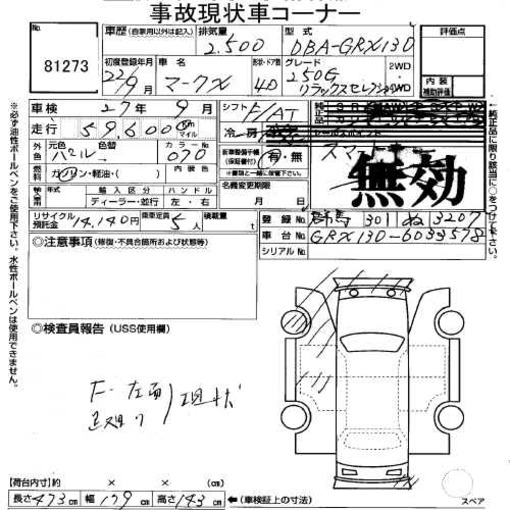 事故現状車コーナー
No.
81273
車歴 (自家用以外は記入) 排気量 2.500 型式 DBA-GRX130
評価点
初度登録年月 22/9月 マークX 形状・ドア数 4D グレード 250G リラックスセレクション 2WD WD
内装 補助評価
車検 27年9月 シフト F/AT
走行 59,600 km マイル
冷房
セールスポイント
スマートキー
無効
外色 元色 パール 色替 カラーNo 070
新車整備手帳 (保証書付) 有・無
※書類と一緒に保管して下さい。
燃料 ガソリン・軽油・( )
名義変更期限 月 日
輸入車 輸入区分 ハンドル
ディーラー・並行 左・右
リサイクル預託金 14,140円 乗車定員 5人 積載量
登録No 群馬 301 ぬ 3207
車台No GRX130-6033578
シリアルNo
◎注意事項 (修復・不具合箇所および状態等)
◎検査員報告 (USS使用欄)
F-左面 現状
【荷台内寸】 約 × × (cm)
長さ 473 cm 幅 179 cm 高さ 143 cm ←(車検証上の寸法)
スペア
※必ず油性ボールペンをご使用下さい。水性ボールペンは使用できません。
※純正品に限り該当に○をつけて下さい。